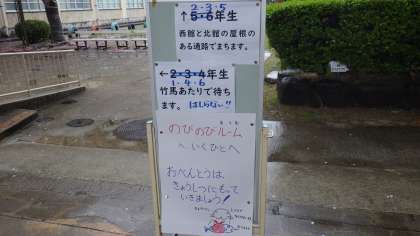 2・3・5
↑5・6年生
西館と北館の屋根の
ある通路でまちます。
←2・3・4年生
1・4・6
竹馬あたりで待ち
ます。はしらない!!
のびのびルーム
へいくひとへ
おべんとうは、
きょうしつにもって
いきましょう!